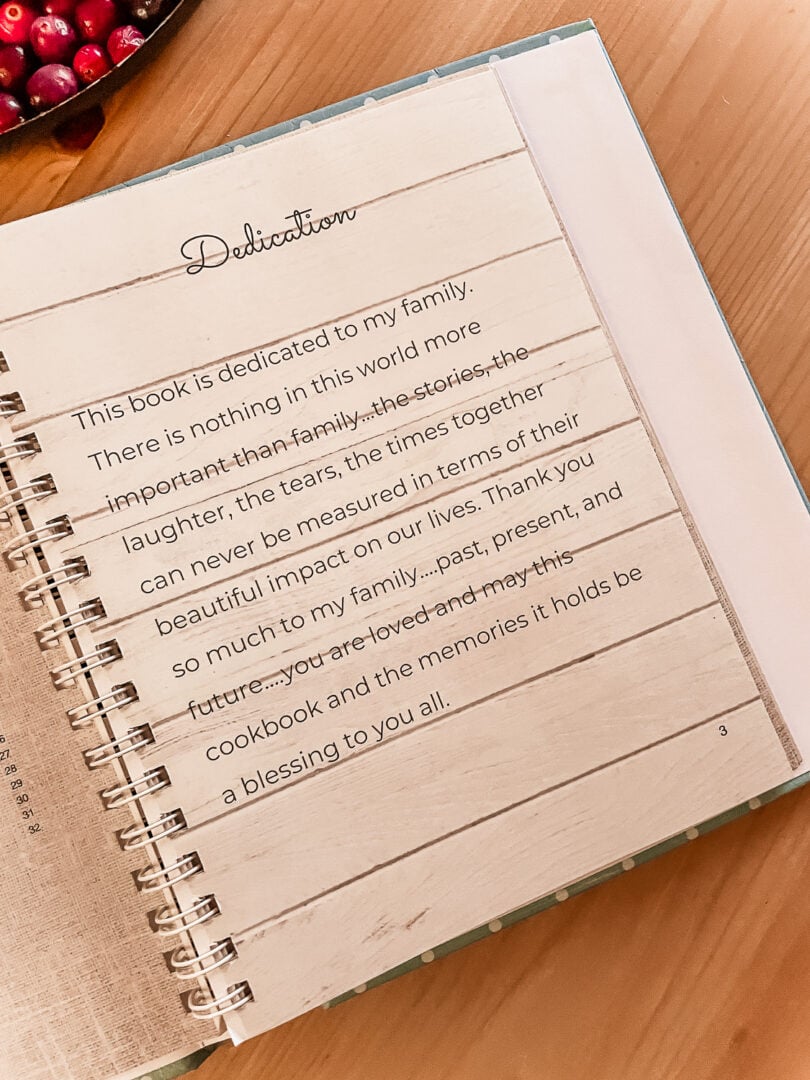 Dedication
This book is dedicated to my family.
There is nothing in this world more
important than family...the stories, the
laughter, the tears, the times together
can never be measured in terms of their
beautiful impact on our lives. Thank you
so much to my family....past, present, and
future....you are loved and may this
cookbook and the memories it holds be
a blessing to you all.
3
27
28
29
30
31
32